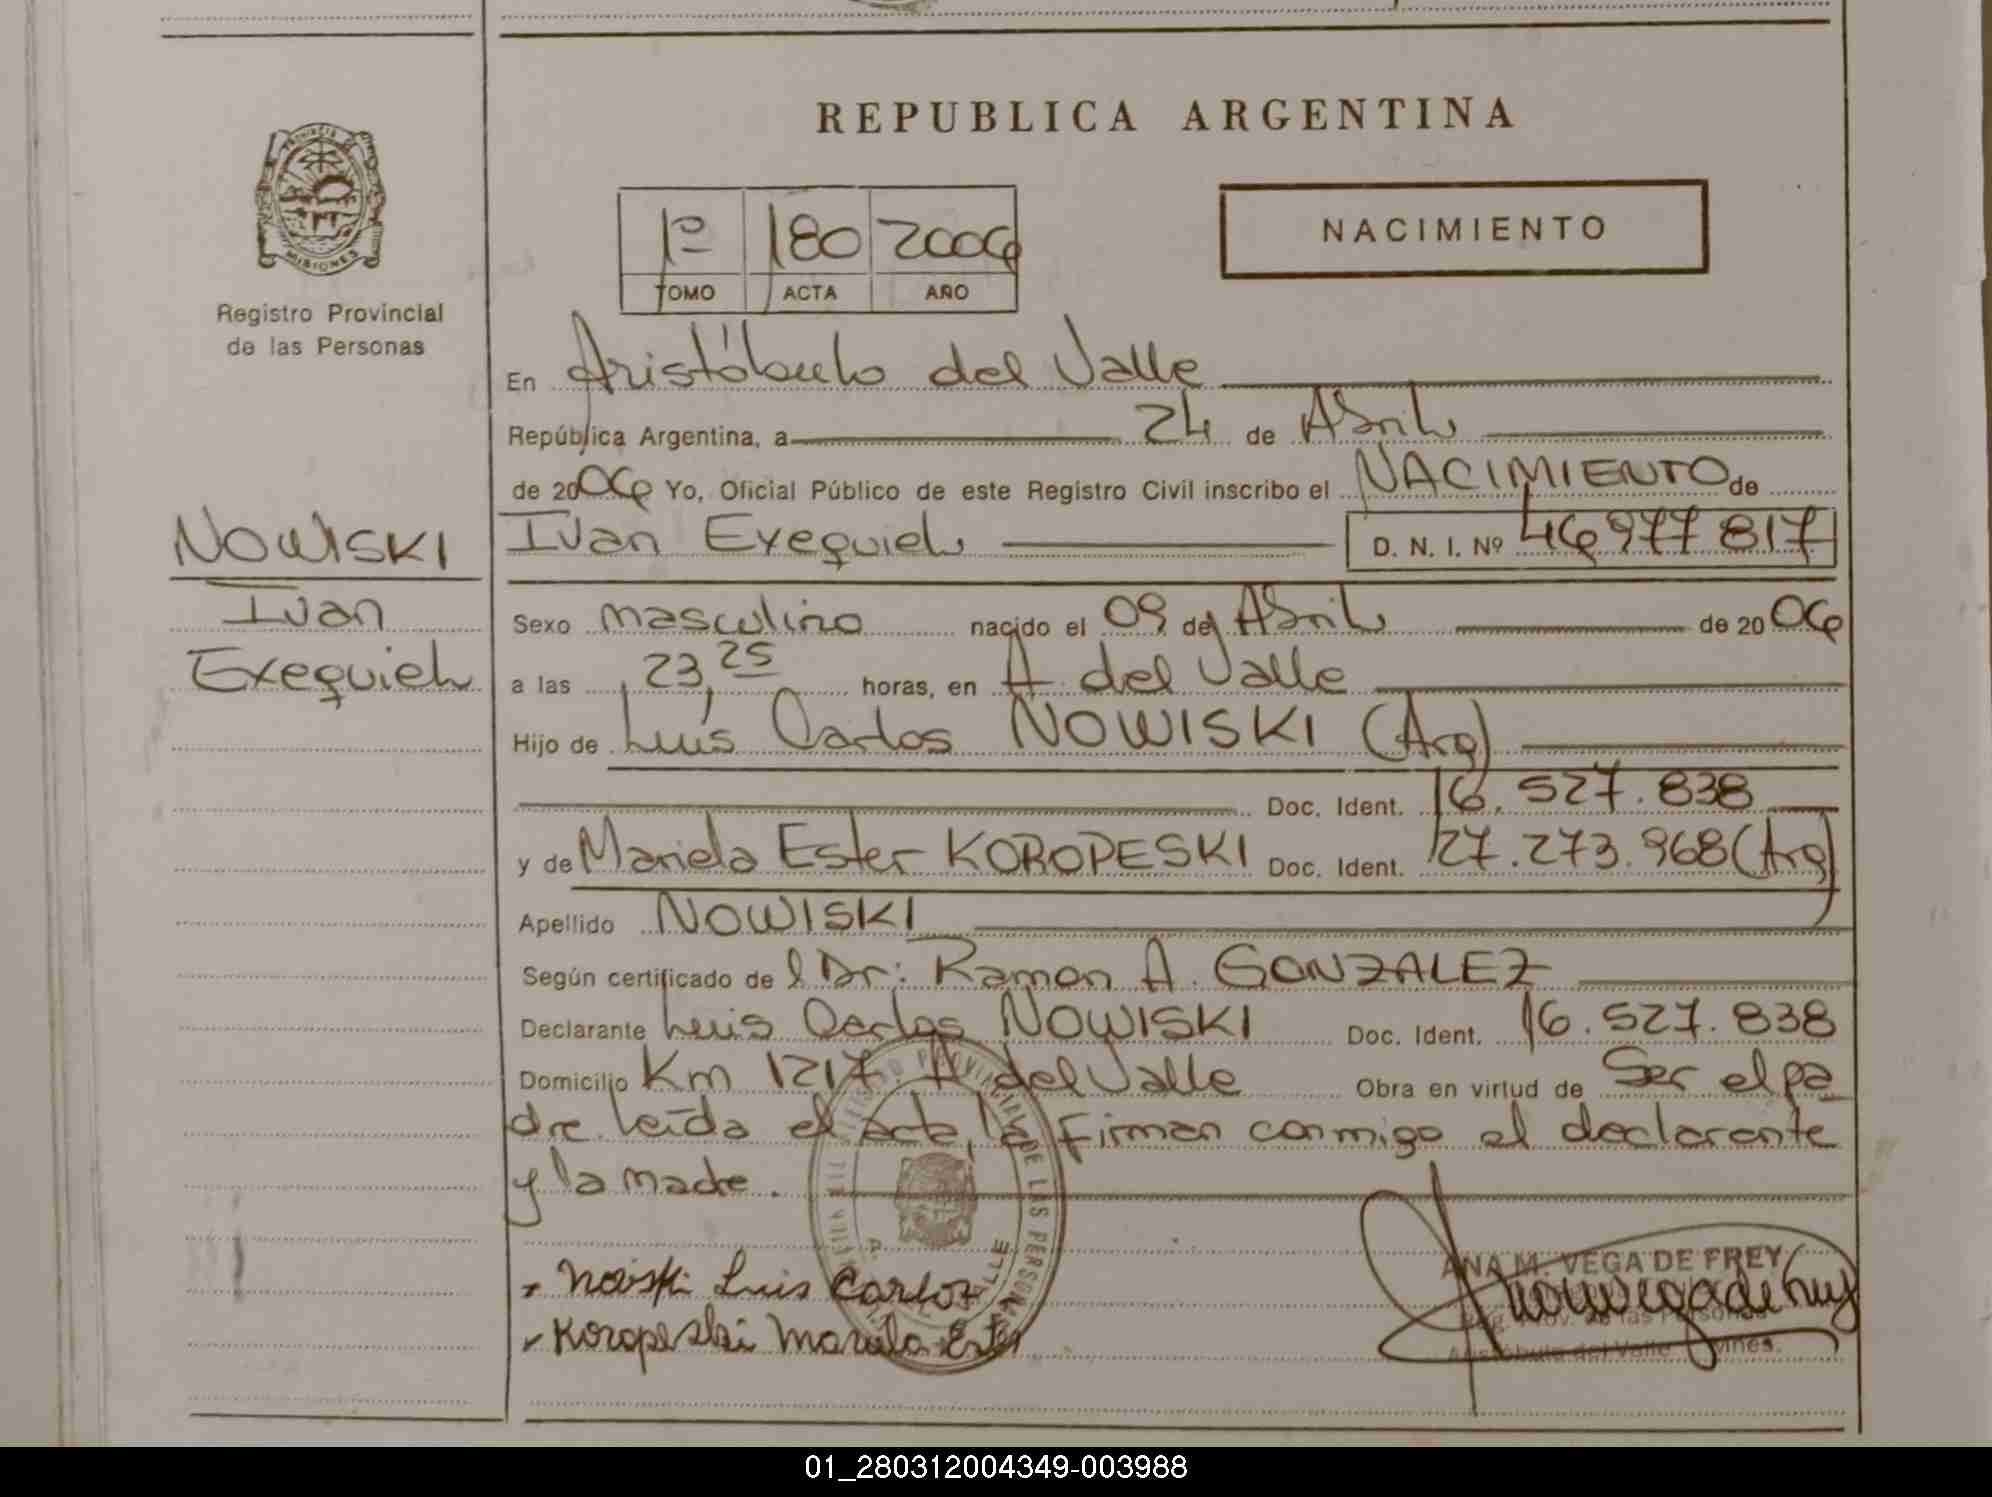 REPUBLICA ARGENTINA
PROVINCIA DE MISIONES
Registro Provincial
de las Personas
1º 180 2006
TOMO ACTA AÑO
NACIMIENTO
En Aristóbulo del Valle
República Argentina, a 24 de Abril
de 2006 Yo, Oficial Público de este Registro Civil inscribo el NACIMIENTO de
Ivan Exequiel D. N. I. Nº 46977817
NOWISKI
Ivan
Exequiel
Sexo masculino nacido el 09 de Abril de 2006
a las 23,25 horas, en A. del Valle
Hijo de Luis Carlos NOWISKI (Arg)
Doc. Ident. 16.527.838
y de Mariela Ester KOROPESKI Doc. Ident. 27.273.968 (Arg)
Apellido NOWISKI
Según certificado de l Dr: Ramon A. GONZALEZ
Declarante Luis Carlos NOWISKI Doc. Ident. 16.527.838
Domicilio Km 1217 A del Valle Obra en virtud de Ser el pa
dre. leída el Acta, la firman conmigo el declarante
y la madre.
REGISTRO PROVINCIAL DE LAS PERSONAS
A. VALLE
Luis Carlos
Koropeski Mariela Ester
ANA M. VEGA DE FREY
Reg. Prov. de las Personas
Aristóbulo del Valle
01_280312004349-003988